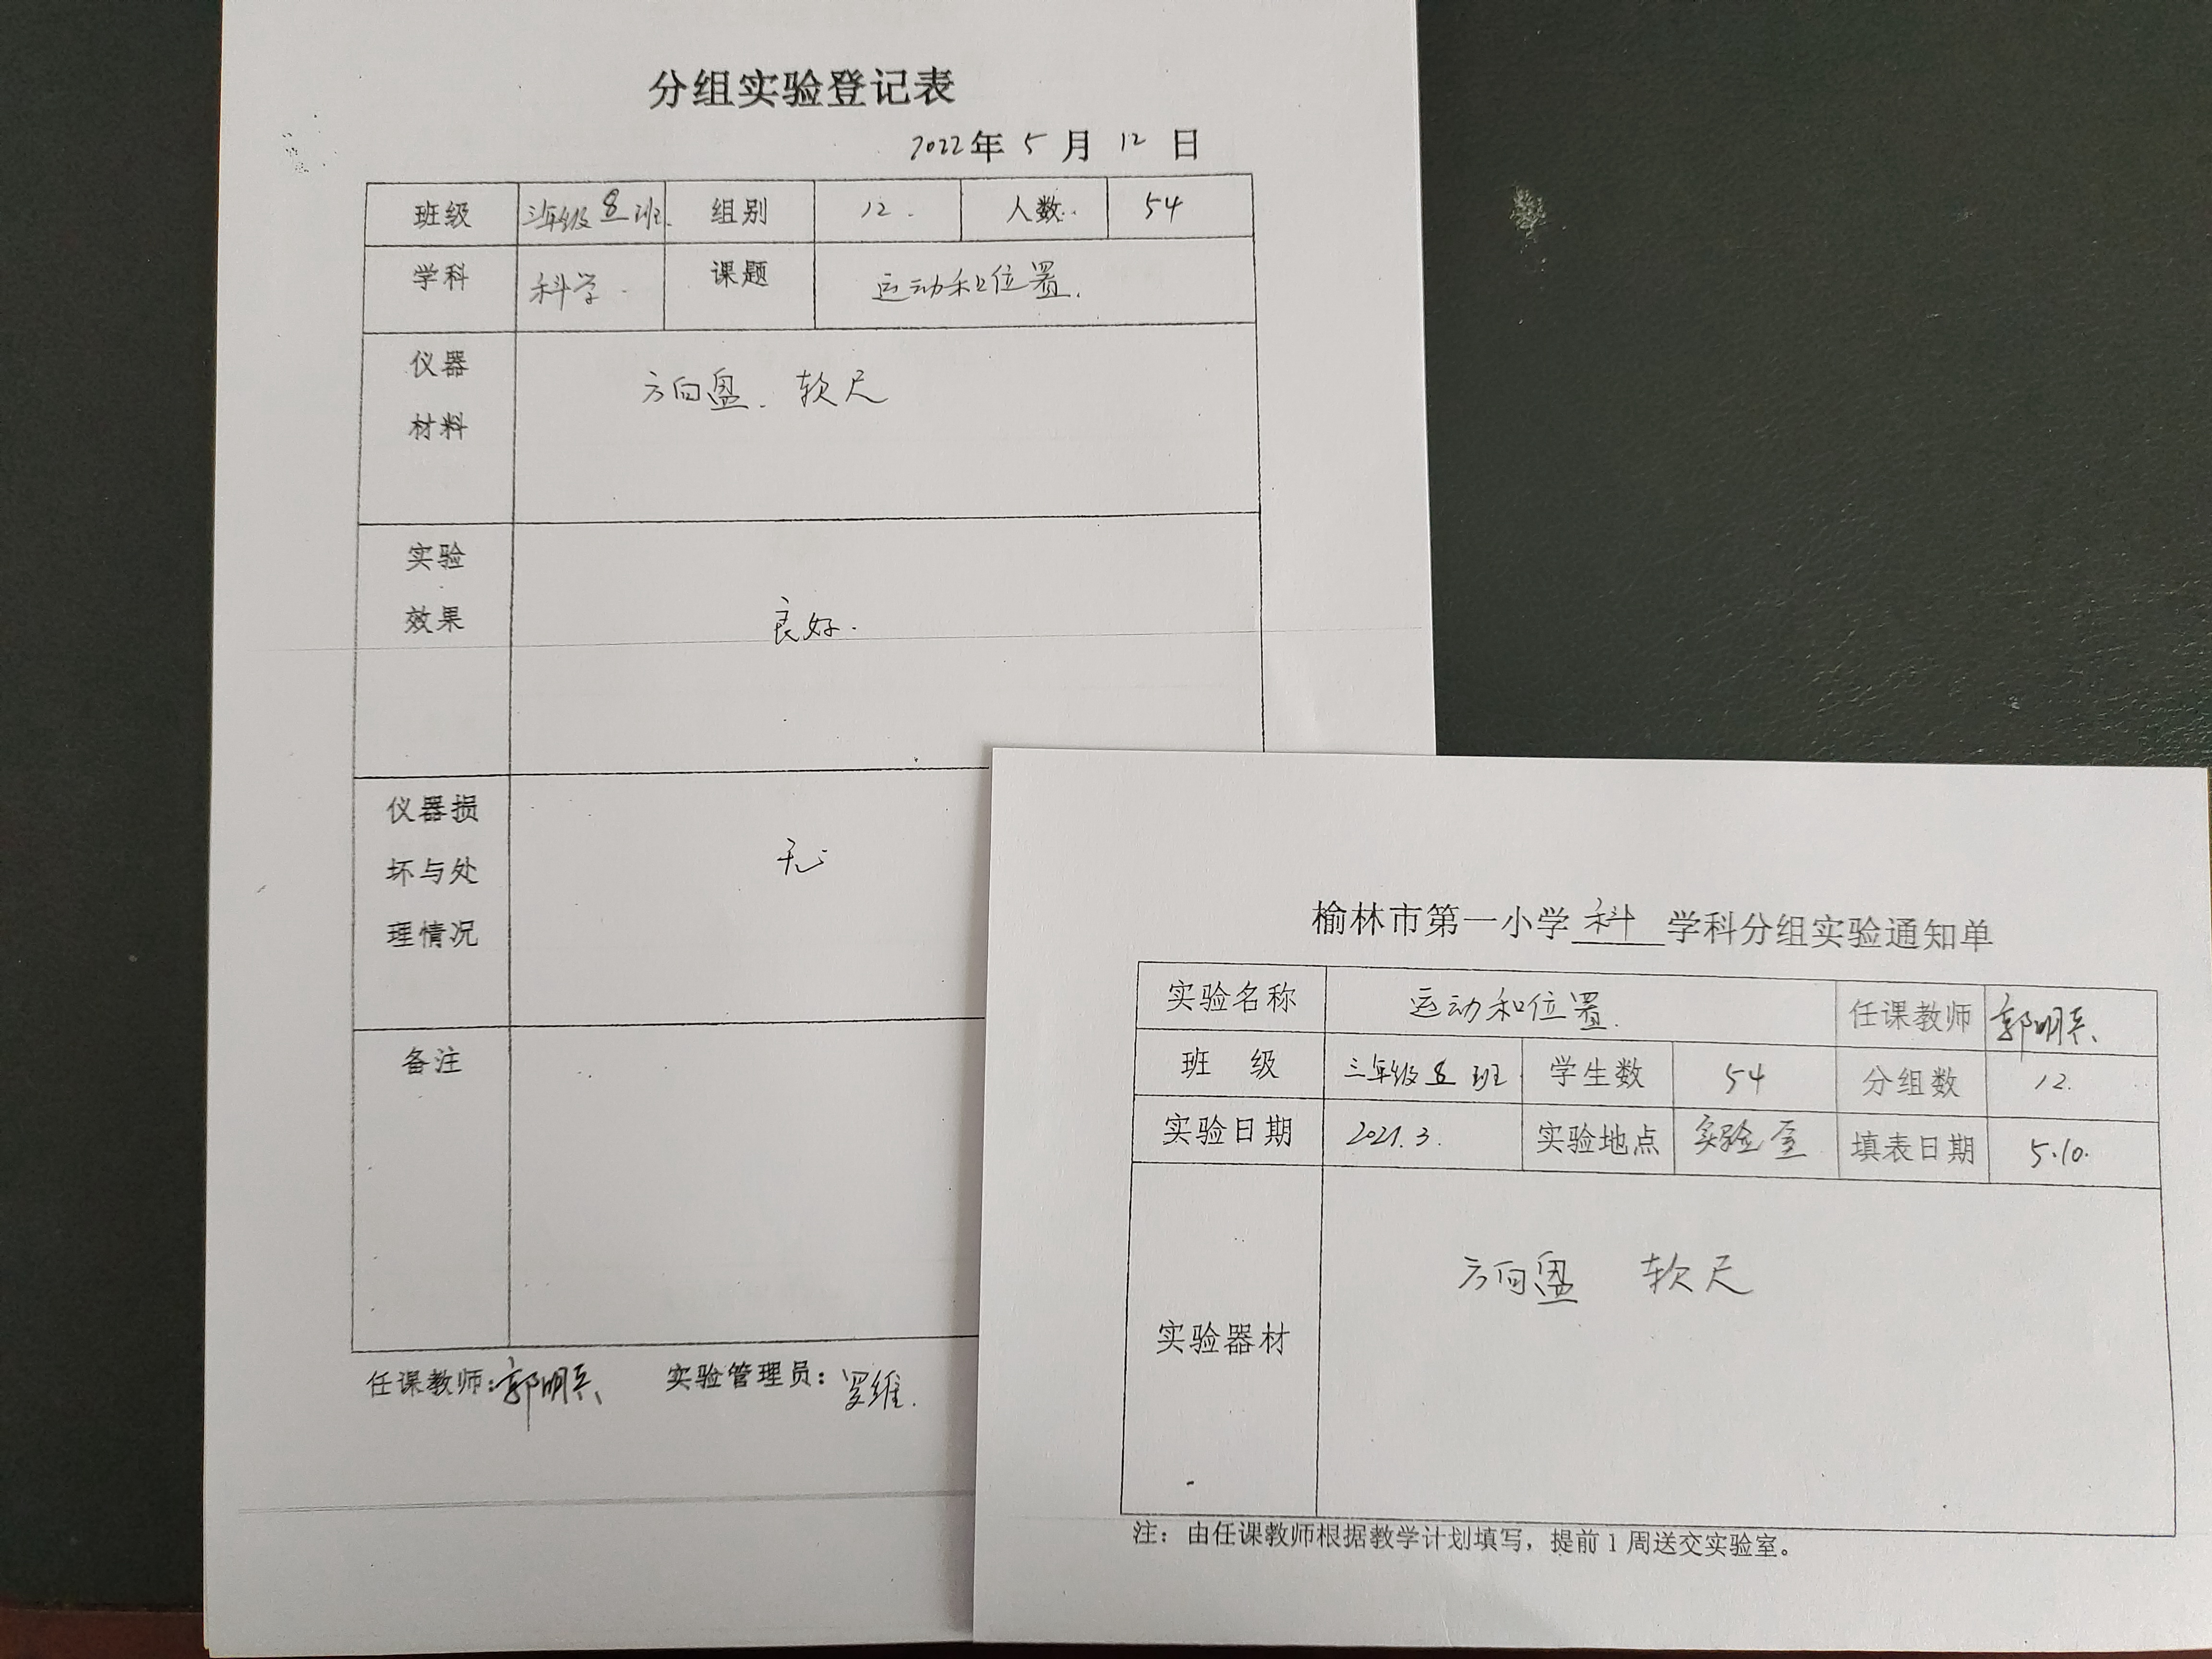 分组实验登记表
2022年 5 月 12 日
班级 三年级 8 班 组别 12. 人数 54
学科 科学 课题 运动和位置.
仪器
材料
方向盘. 软尺
实验
效果
良好.
仪器损
坏与处
理情况
无
备注
任课教师:郭明兵 实验管理员:罗维.
榆林市第一小学 科 学科分组实验通知单
实验名称 运动和位置. 任课教师 郭明兵
班 级 三年级 8 班 学生数 54 分组数 12.
实验日期 2021.3. 实验地点 实验室 填表日期 5.10.
实验器材
方向盘 软尺
注：由任课教师根据教学计划填写，提前1周送交实验室。